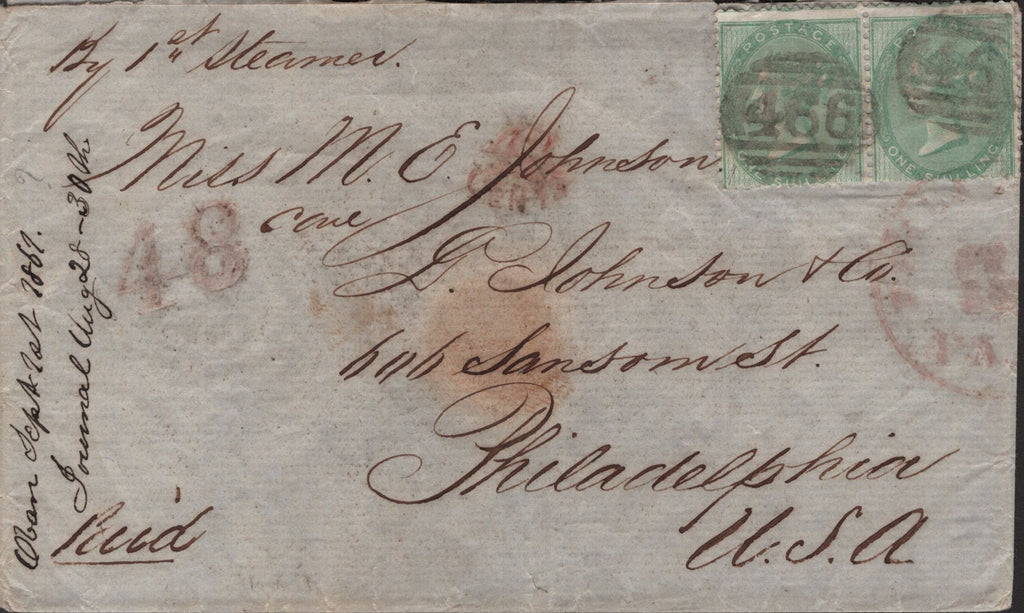 By 1st Steamer.
Miss M. E. Johnson
care
D. Johnson & Co.
Sansom St.
Philadelphia
U.S.A
Paid
Oban Sept 1st
Journal Aug 28-30th
48
POSTAGE
466
ONE SHILLING